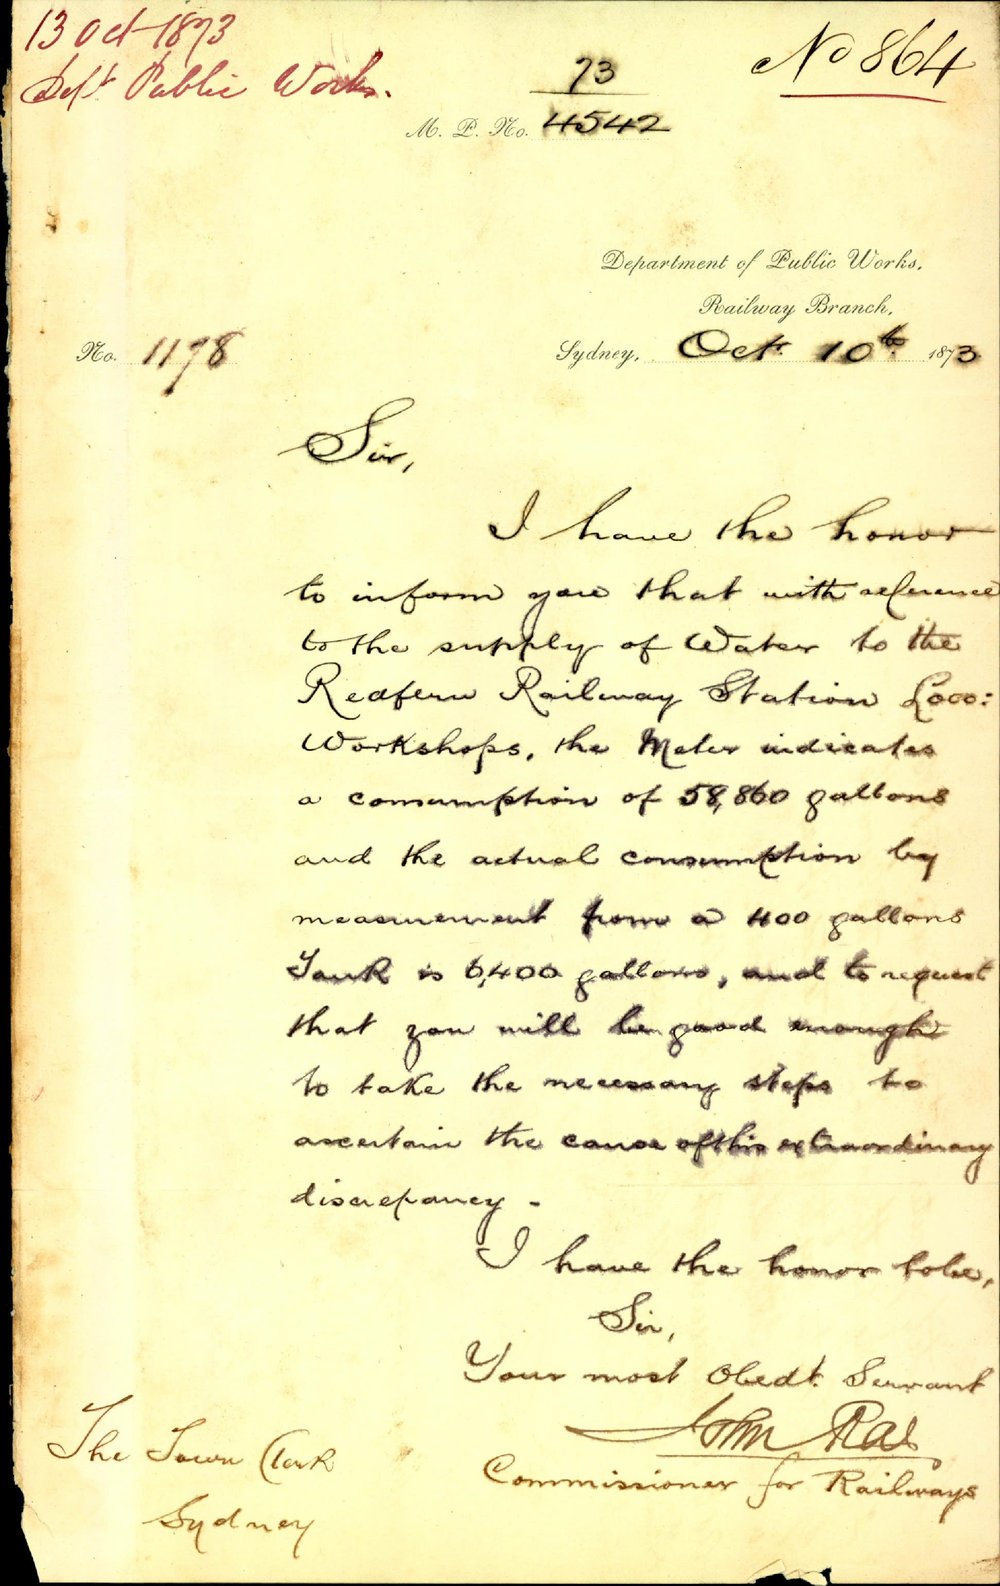 13 Oct 1873
Dept Public Works.
No 864
73
M. P. No. 4542
Department of Public Works,
Railway Branch,
No. 1178
Sydney, Octr. 10th. 1873
Sir,
I have the honor
to inform you that with reference
to the supply of Water to the
Redfern Railway Station Loco:
Workshops, the Meter indicates
a consumption of 58,860 gallons
and the actual consumption by
measurement from a 400 gallons
Tank is 6,400 gallons, and to request
that you will be good enough
to take the necessary steps to
ascertain the cause of this extraordinary
discrepancy -
I have the honor to be,
Sir,
Your most Obedt. Servant
John Rae
Commissioner for Railways
The Town Clerk
Sydney